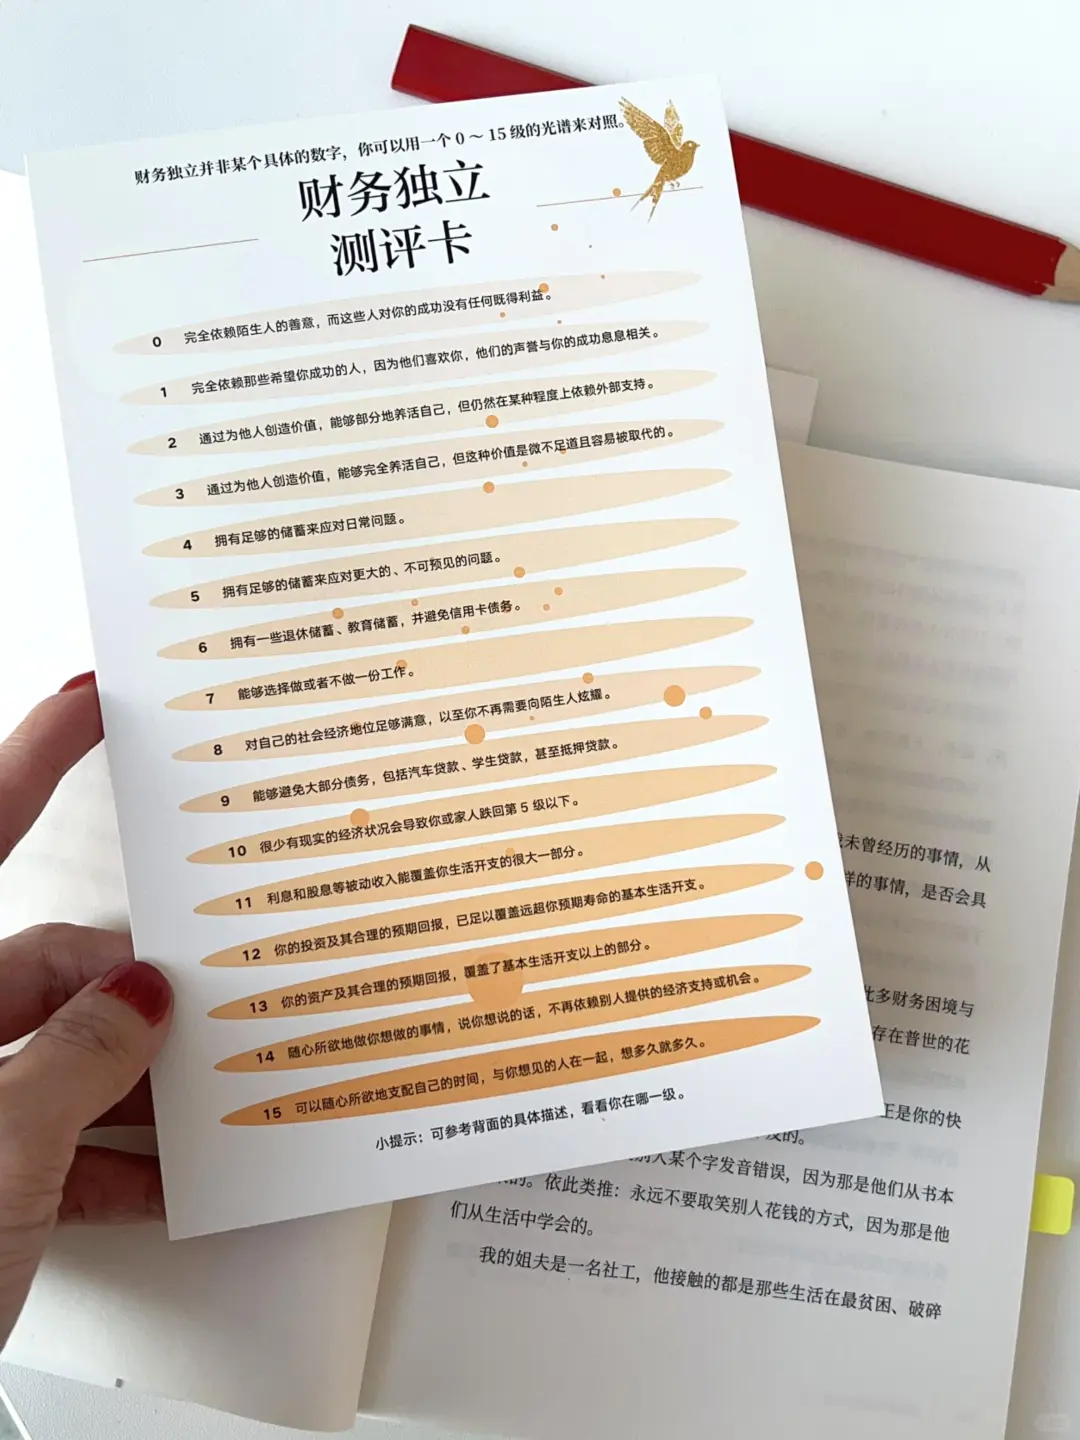 财务独立并非某个具体的数字，你可以用一个 0～15 级的光谱来对照。
财务独立
测评卡
0 完全依赖陌生人的善意，而这些人对你的成功没有任何既得利益。
1 完全依赖那些希望你成功的人，因为他们喜欢你，他们的声誉与你的成功息息相关。
2 通过为他人创造价值，能够部分地养活自己，但仍然在某种程度上依赖外部支持。
3 通过为他人创造价值，能够完全养活自己，但这种价值是微不足道且容易被取代的。
4 拥有足够的储蓄来应对日常问题。
5 拥有足够的储蓄来应对更大的、不可预见的问题。
6 拥有一些退休储蓄、教育储蓄，并避免信用卡债务。
7 能够选择做或者不做一份工作。
8 对自己的社会经济地位足够满意，以至你不再需要向陌生人炫耀。
9 能够避免大部分债务，包括汽车贷款、学生贷款，甚至抵押贷款。
10 很少有现实的经济状况会导致你或家人跌回第 5 级以下。
11 利息和股息等被动收入能覆盖你生活开支的很大一部分。
12 你的投资及其合理的预期回报，已足以覆盖远超你预期寿命的基本生活开支。
13 你的资产及其合理的预期回报，覆盖了基本生活开支以上的部分。
14 随心所欲地做你想做的事情，说你想说的话，不再依赖别人提供的经济支持或机会。
15 可以随心所欲地支配自己的时间，与你想见的人在一起，想多久就多久。
小提示：可参考背面的具体描述，看看你在哪一级。
未曾经历的事情，从
样的事情，是否会具
此多财务困境与
存在普世的花
正是你的快
及的。
别人某个字发音错误，因为那是他们从书本
的。依此类推：永远不要取笑别人花钱的方式，因为那是他
们从生活中学会的。
我的姐夫是一名社工，他接触的都是那些生活在最贫困、破碎